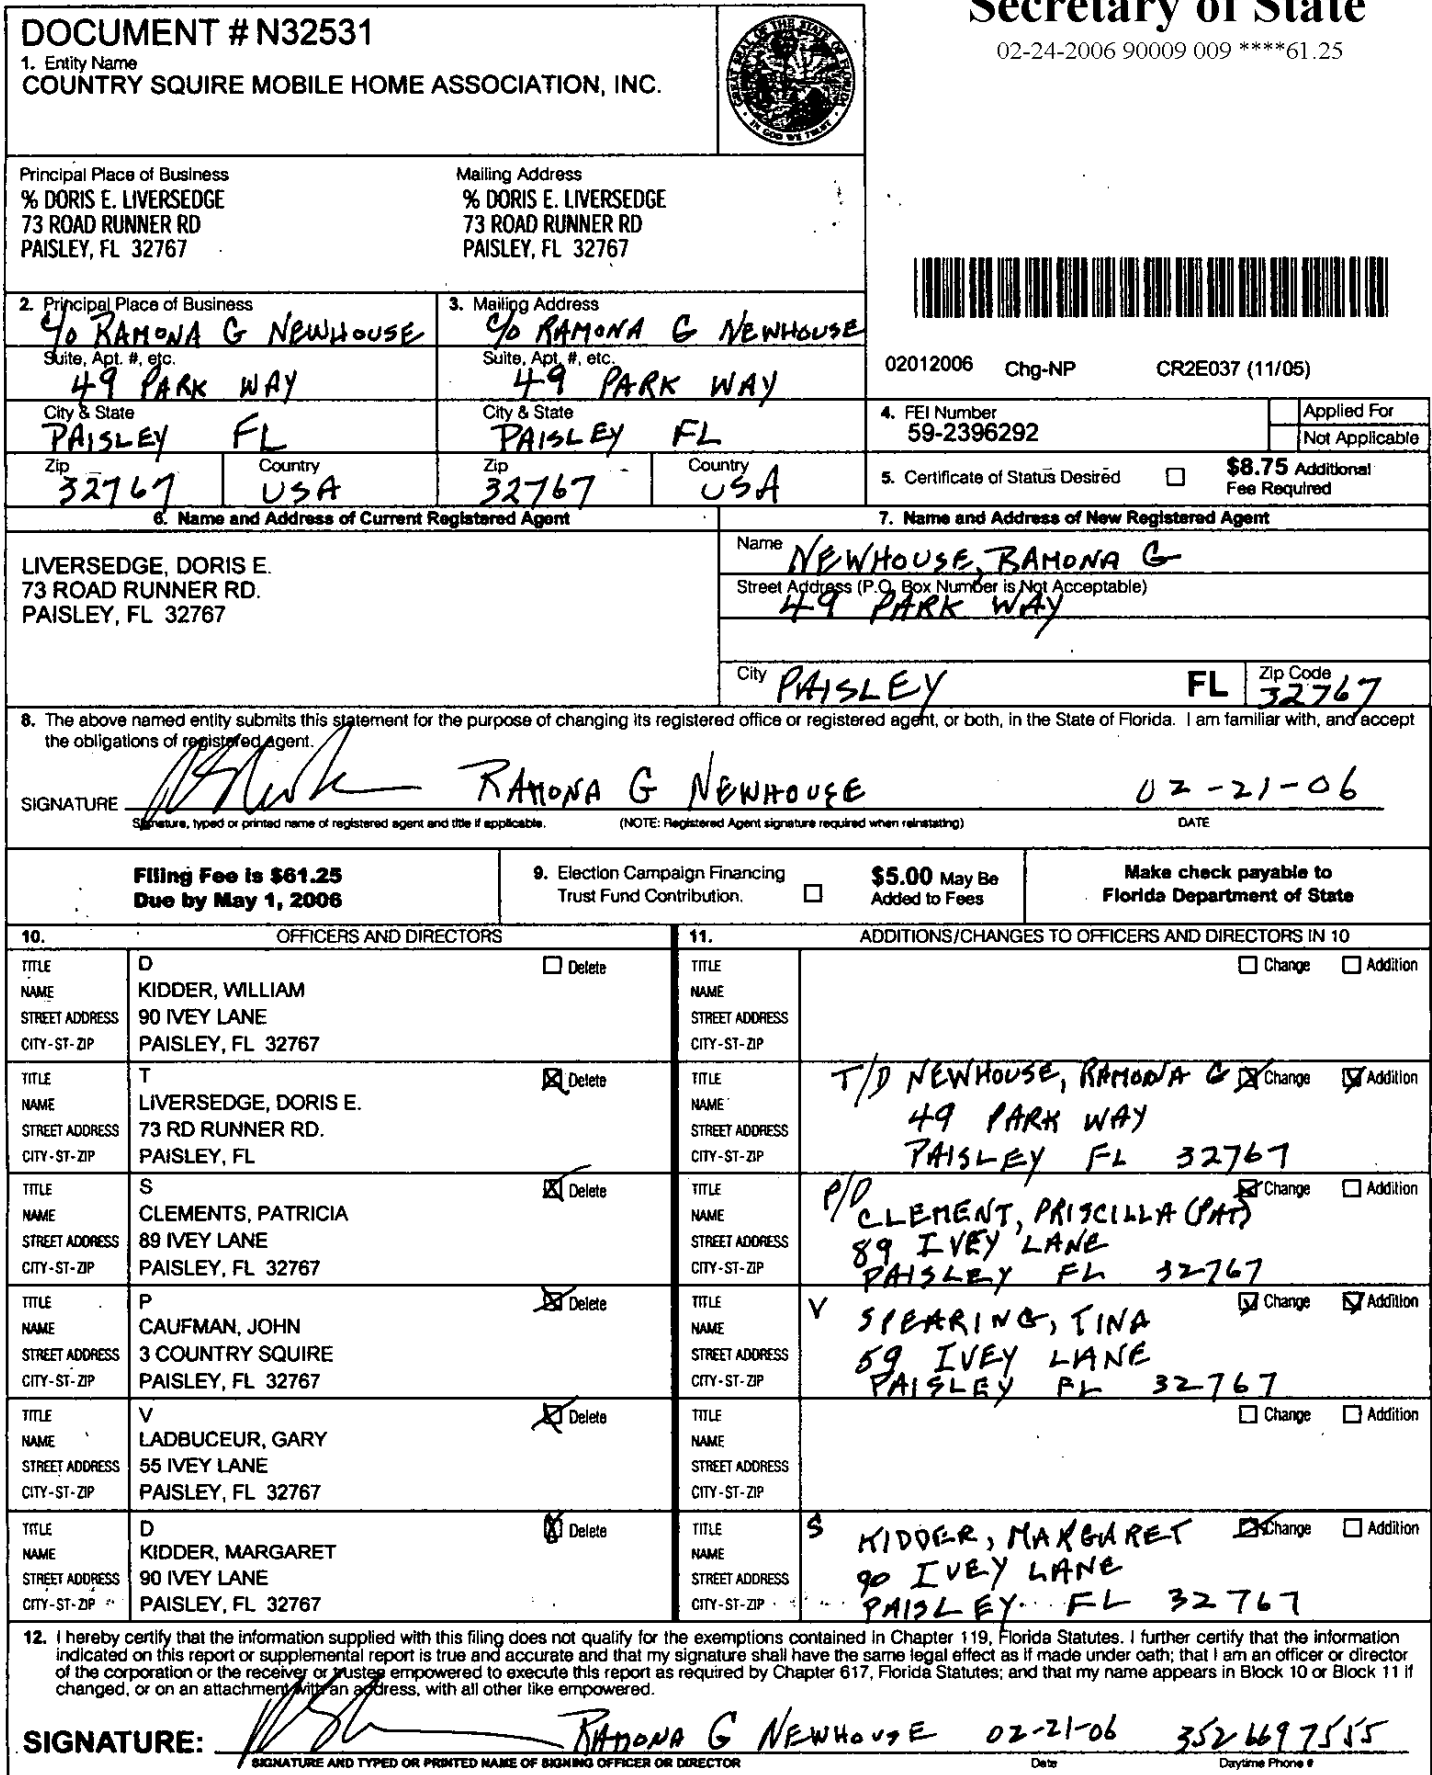 Secretary of State
02-24-2006 90009 009 ****61.25
DOCUMENT # N32531
1. Entity Name
COUNTRY SQUIRE MOBILE HOME ASSOCIATION, INC.
GREAT SEAL OF THE STATE OF FLORIDA
IN GOD WE TRUST
Principal Place of Business
% DORIS E. LIVERSEDGE
73 ROAD RUNNER RD
PAISLEY, FL 32767
Mailing Address
% DORIS E. LIVERSEDGE
73 ROAD RUNNER RD
PAISLEY, FL 32767
2. Principal Place of Business
C/O RAMONA G NEWHOUSE
Suite, Apt. #, etc.
49 PARK WAY
City & State
PAISLEY FL
Zip
32767
Country
USA
3. Mailing Address
C/O RAMONA G NEWHOUSE
Suite, Apt. #, etc.
49 PARK WAY
City & State
PAISLEY FL
Zip
32767
Country
USA
02012006 Chg-NP CR2E037 (11/05)
4. FEI Number
59-2396292
Applied For
Not Applicable
5. Certificate of Status Desired
$8.75 Additional
Fee Required
6. Name and Address of Current Registered Agent
LIVERSEDGE, DORIS E.
73 ROAD RUNNER RD.
PAISLEY, FL 32767
7. Name and Address of New Registered Agent
Name NEWHOUSE, RAMONA G
Street Address (P.O. Box Number is Not Acceptable)
49 PARK WAY
City PAISLEY FL Zip Code
32767
8. The above named entity submits this statement for the purpose of changing its registered office or registered agent, or both, in the State of Florida. I am familiar with, and accept
the obligations of registered agent.
SIGNATURE RAMONA G NEWHOUSE 02-21-06
Signature, typed or printed name of registered agent and title if applicable. (NOTE: Registered Agent signature required when reinstating) DATE
Filing Fee is $61.25
Due by May 1, 2006
9. Election Campaign Financing
Trust Fund Contribution.
$5.00 May Be
Added to Fees
Make check payable to
Florida Department of State
10. OFFICERS AND DIRECTORS
11. ADDITIONS/CHANGES TO OFFICERS AND DIRECTORS IN 10
TITLE D Delete
NAME KIDDER, WILLIAM
STREET ADDRESS 90 IVEY LANE
CITY-ST-ZIP PAISLEY, FL 32767
TITLE Change Addition
NAME
STREET ADDRESS
CITY-ST-ZIP
TITLE T Delete
NAME LIVERSEDGE, DORIS E.
STREET ADDRESS 73 RD RUNNER RD.
CITY-ST-ZIP PAISLEY, FL
TITLE T/D NEWHOUSE, RAMONA G Change Addition
NAME
STREET ADDRESS 49 PARK WAY
CITY-ST-ZIP PAISLEY FL 32767
TITLE S Delete
NAME CLEMENTS, PATRICIA
STREET ADDRESS 89 IVEY LANE
CITY-ST-ZIP PAISLEY, FL 32767
TITLE P/D Change Addition
NAME CLEMENT, PRISCILLA (PAT)
STREET ADDRESS 89 IVEY LANE
CITY-ST-ZIP PAISLEY FL 32767
TITLE P Delete
NAME CAUFMAN, JOHN
STREET ADDRESS 3 COUNTRY SQUIRE
CITY-ST-ZIP PAISLEY, FL 32767
TITLE V Change Addition
NAME SPEARING, TINA
STREET ADDRESS 59 IVEY LANE
CITY-ST-ZIP PAISLEY FL 32767
TITLE V Delete
NAME LADBUCEUR, GARY
STREET ADDRESS 55 IVEY LANE
CITY-ST-ZIP PAISLEY, FL 32767
TITLE Change Addition
NAME
STREET ADDRESS
CITY-ST-ZIP
TITLE D Delete
NAME KIDDER, MARGARET
STREET ADDRESS 90 IVEY LANE
CITY-ST-ZIP PAISLEY, FL 32767
TITLE S Change Addition
NAME KIDDER, MARGARET
STREET ADDRESS 90 IVEY LANE
CITY-ST-ZIP PAISLEY FL 32767
12. I hereby certify that the information supplied with this filing does not qualify for the exemptions contained in Chapter 119, Florida Statutes. I further certify that the information
indicated on this report or supplemental report is true and accurate and that my signature shall have the same legal effect as if made under oath; that I am an officer or director
of the corporation or the receiver or trustee empowered to execute this report as required by Chapter 617, Florida Statutes; and that my name appears in Block 10 or Block 11 if
changed, or on an attachment with an address, with all other like empowered.
SIGNATURE: RAMONA G NEWHOUSE 02-21-06 352 669 7555
SIGNATURE AND TYPED OR PRINTED NAME OF SIGNING OFFICER OR DIRECTOR Date Daytime Phone #